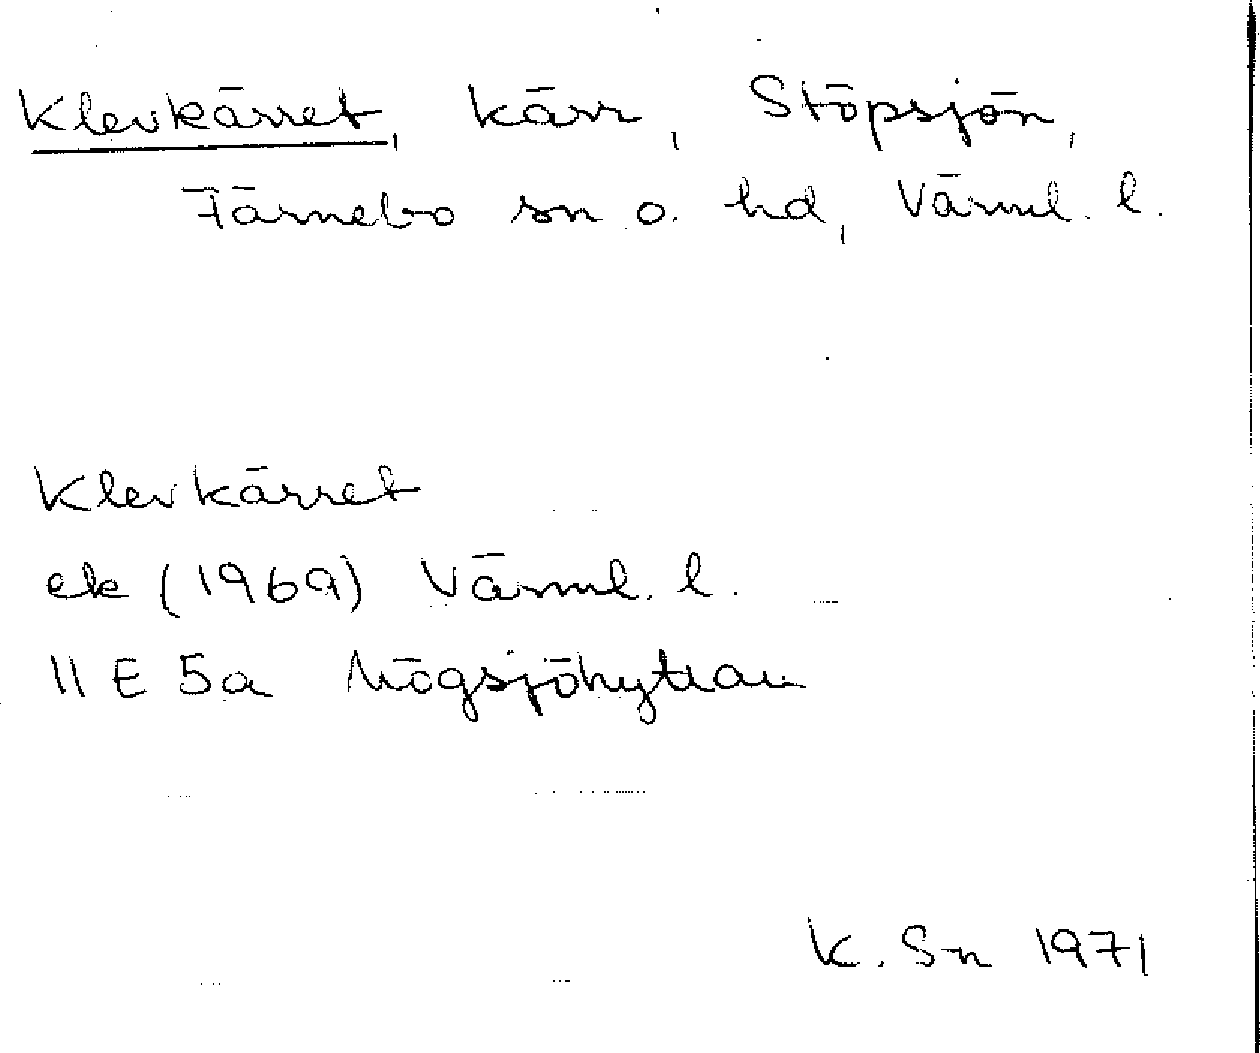 Klevkärret, kärr, Stöpsjön,
Färnebo sn o. hd, Värml. l.
Klevkärret
ek (1969) Värml. l.
11 E 5a Högsjöhyttan
K. Sn 1971